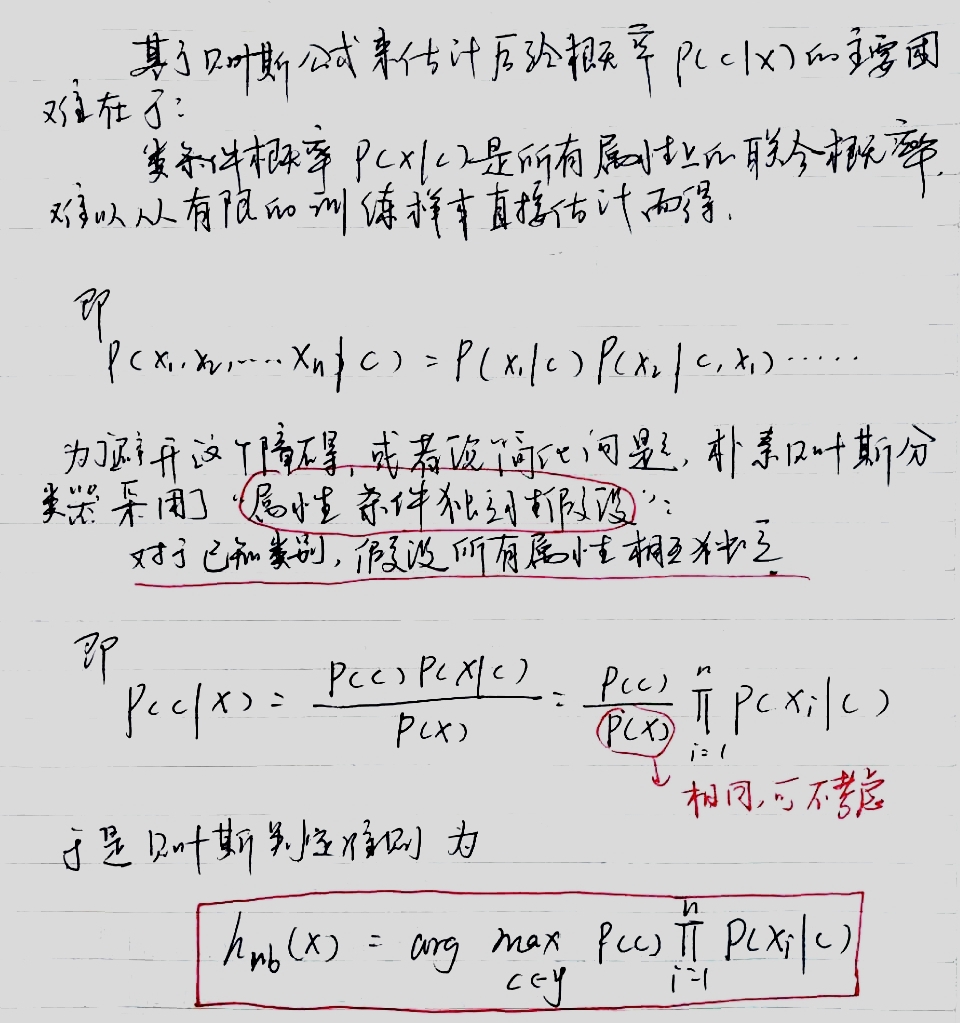 基于贝叶斯公式来估计后验概率 P(c|x)的主要困
难在于:
类条件概率 P(x|c)是所有属性上的联合概率,
难以从有限的训练样本直接估计而得.
即
P(x₁,x₂,……xₙ|c) = P(x₁|c) P(x₂|c,x₁)……
为了避开这个障碍,或者说简化问题,朴素贝叶斯分
类器采用了“属性条件独立性假设”:
对于已知类别,假设所有属性相互独立.
即
P(c|x) = \frac{P(c)P(x|c)}{P(x)} = \frac{P(c)}{P(x)} \prod_{i=1}^{n} P(x_i|c)
相同,可不考虑
于是贝叶斯判定准则为
h_{nb}(x) = arg max_{c∈y} P(c) \prod_{i=1}^{n} P(x_i|c)